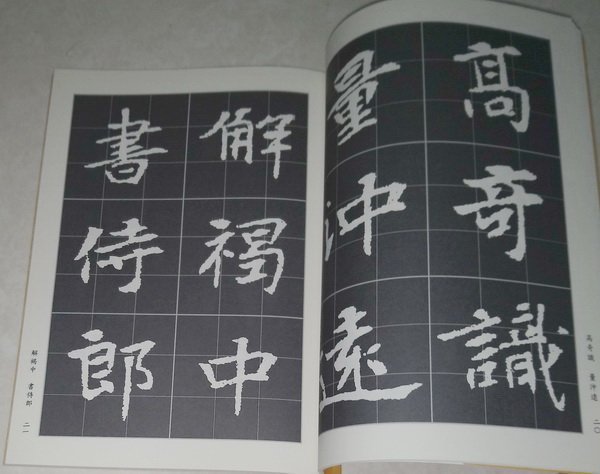 高奇識
量沖遠
高奇識 量沖遠 二〇
解褐中
書侍郎
解褐中 書侍郎 二一